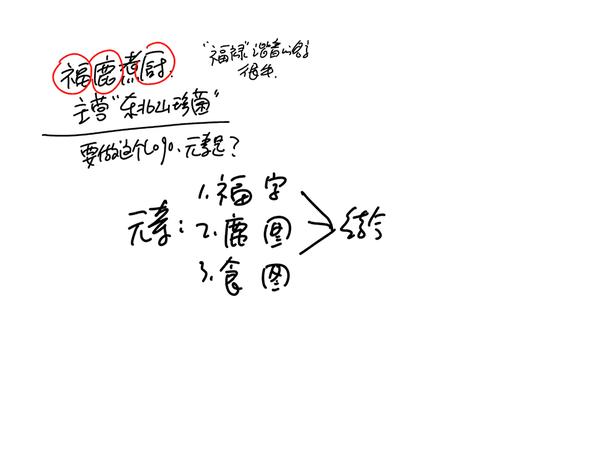 福鹿煮厨.
"福禄"谐音
很多.
主营"东北山珍菌"
要做这个logo、元素是?
元素:
1.福 字
2.鹿 图
3.食 图
结合